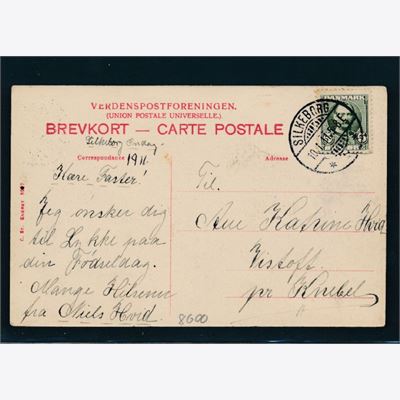 VERDENSPOSTFORENINGEN.
(UNION POSTALE UNIVERSELLE.)
BREVKORT — CARTE POSTALE
Silkeborg Onsdag
Correspondance 19 11
Adresse
DANMARK
SILKEBORG
Kære Faster!
Jeg ønsker dig
til Lykke paa
din Fødseldag.
Mange Hilsener
fra Niels Hvid.
Til
Ane Katrine Hvid
Vistoft
pr Knebel
8600